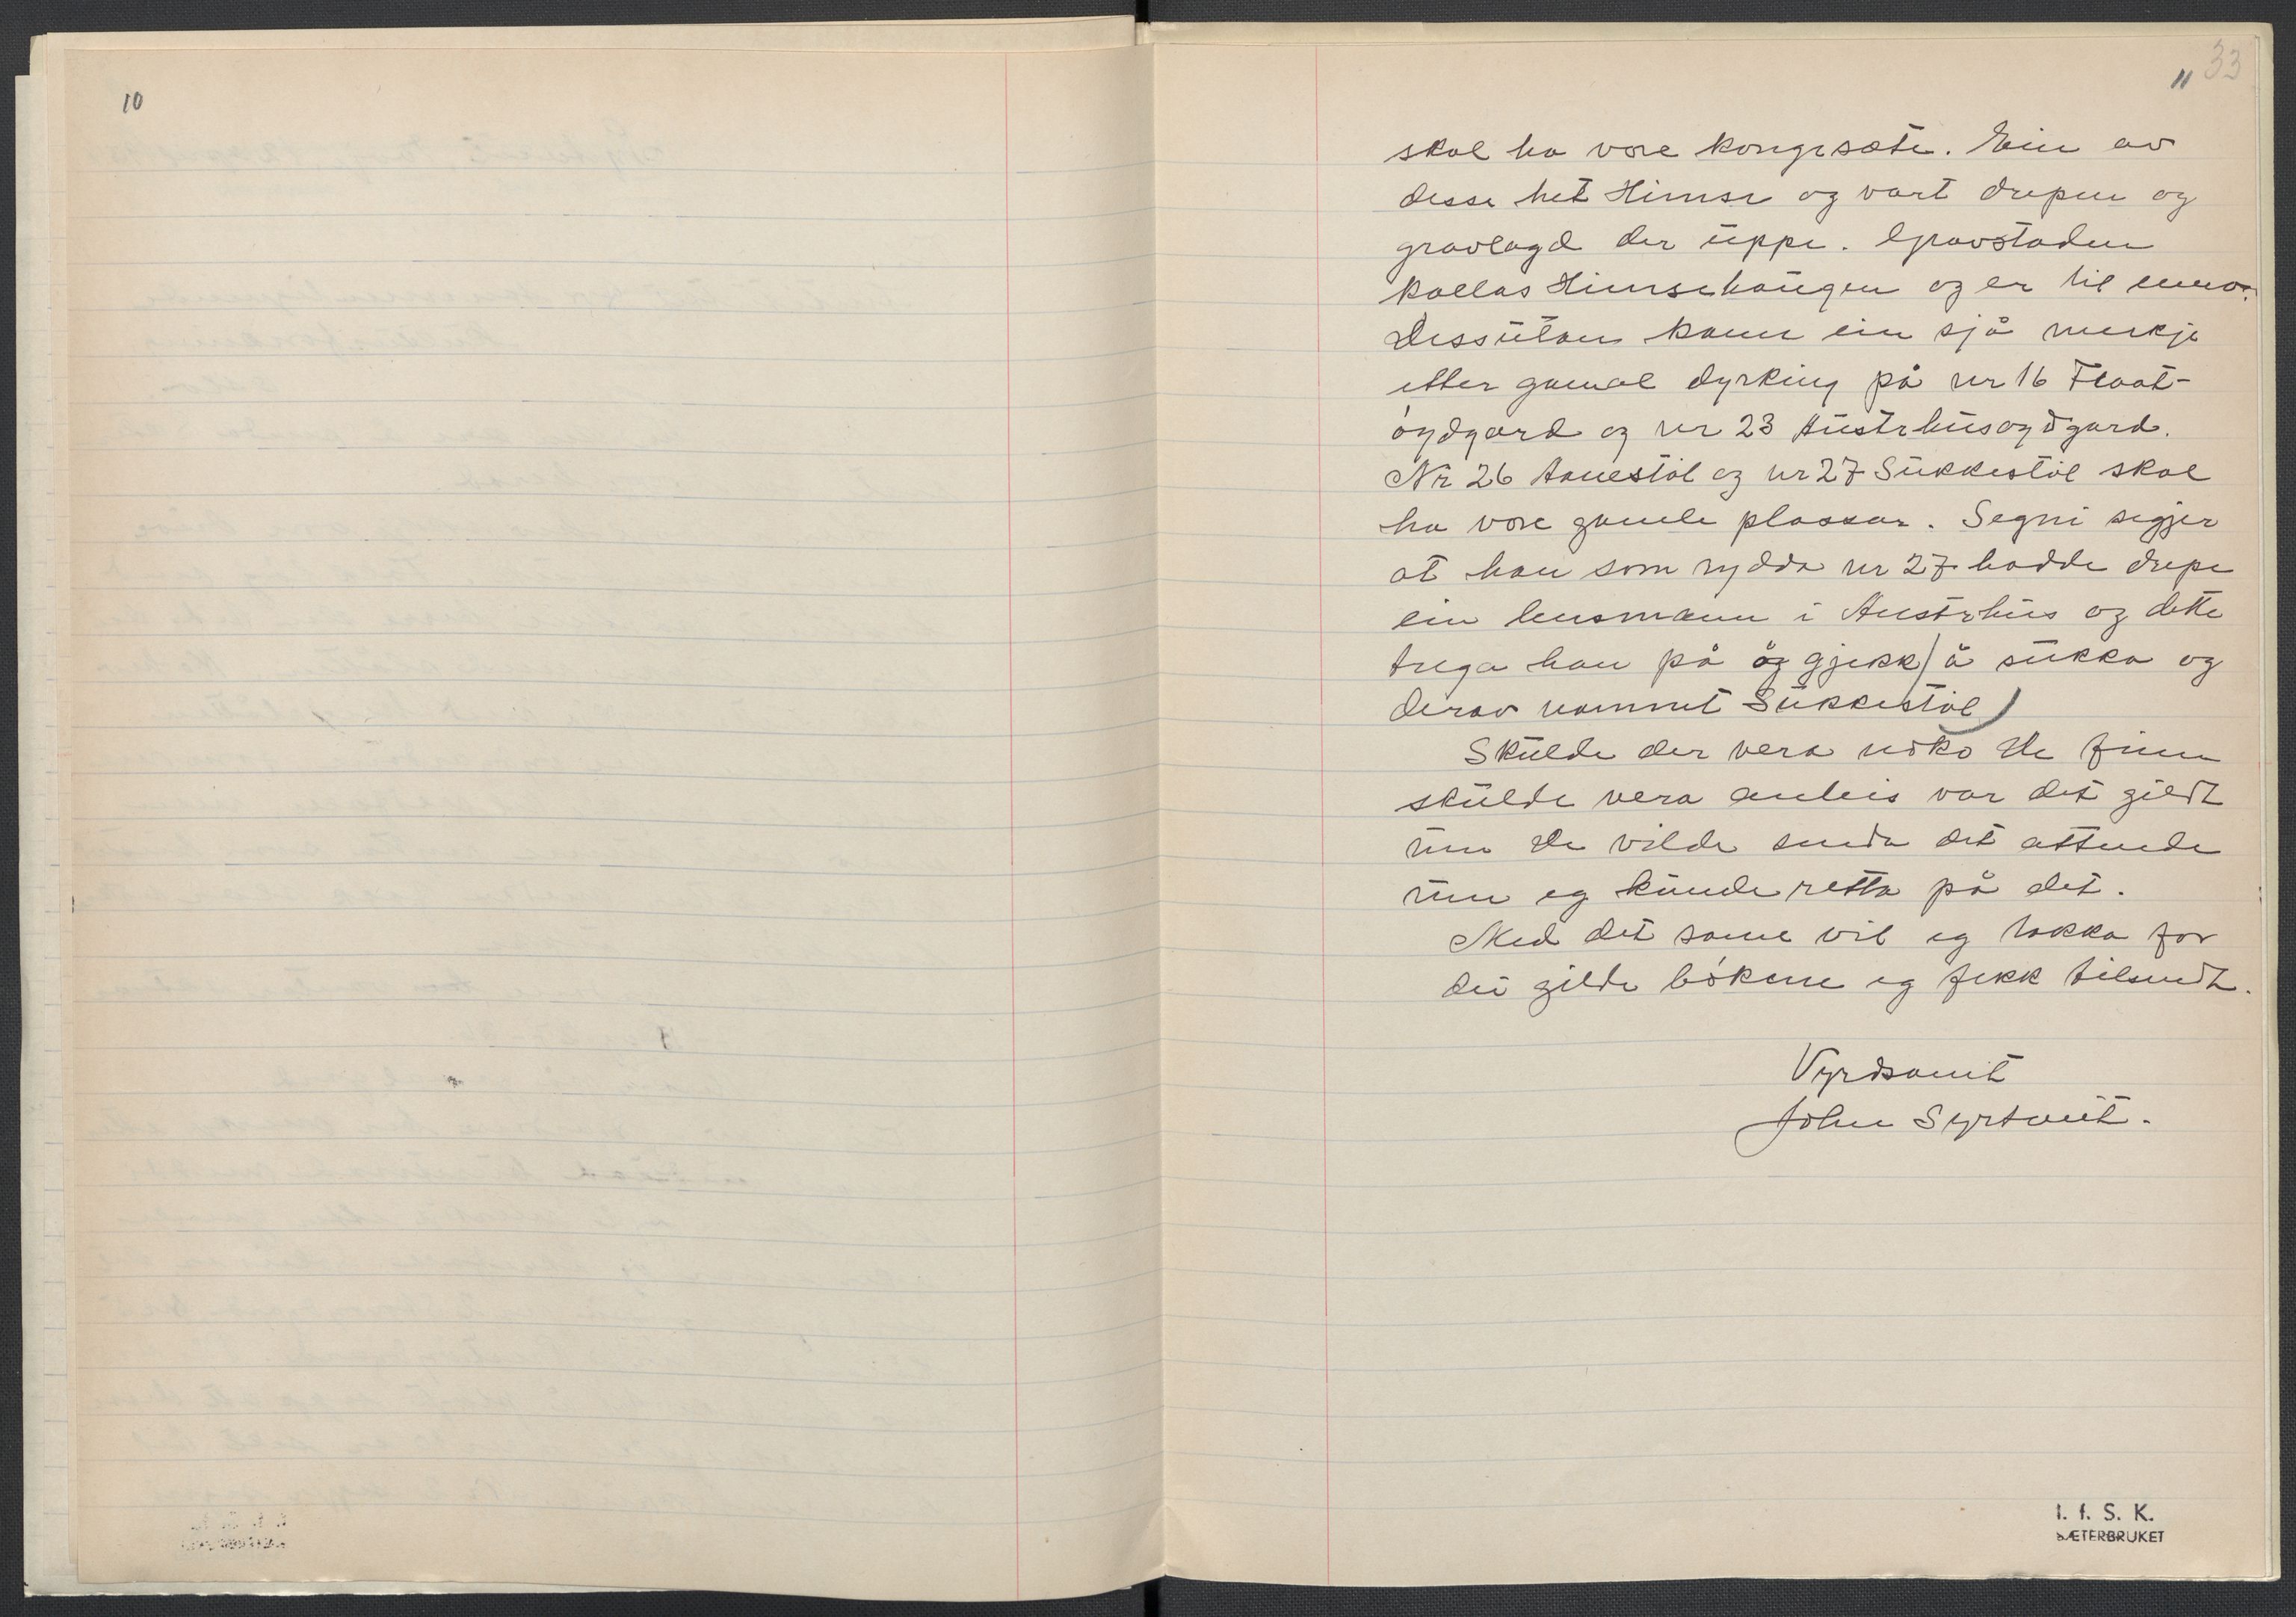 10
11 33
skal ha vore kongesæte. Ein av
desse het Himse og vart drepen og
gravlagd der uppe. Gravstaden
kallas Himsehaugen og er til enno.
Dessutan kann ein sjå merkje
etter gamal dyrking på nr 16 Flaat-
øydgard og nr 23 Austrhusøydgard.
Nr 26 Aanestøl og nr 27 Sukkestøl skal
ha vore gamle plassar. Segni segjer
at han som rydda nr 27 hadde drepe
ein lensmann i Austrhus og dette
trega han på og gjekk å sukka og
derav nammnet Sukkestøl)
Skulde der vera noko De finn
skulde vera anleis var det gildt
um De vilde senda det attende
um eg kunde retta på det.
Med det same vil eg takka for
dei gilde bøkene eg fekk tilsendt.
Vyrdsamt
John Syrtveit.
I. f. S. K.
SÆTERBRUKET